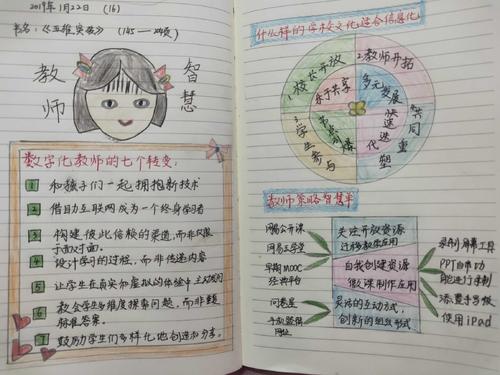 2019年1月22日 (16)
书名:《互联实验》(145——页)
教师
智慧
数字化教师的七个转变:
1 和孩子们一起拥抱新技术
2 借助互联网成为一个终身学习者
3 构建彼此信赖的渠道,而非仅限于面对面。
4 设计学习的过程,而非传递内容
5 让学生在真和虚拟的体验中主动
6 教会学生多维度探索问题,而非标准答案。
7 鼓励学生们多样化地创造和分享。
什么样的学校文化适合信息化
1校长开放
2教师开拓
乐于共享
多元发展
3学生参与
快速迭代
共同重塑
教师策略智慧羊
网易公开课
网易云学堂
早期MOOC
经典平台
问卷星
关注开放资源
迁移教学应用
自我创建资源
微课制作应用
灵活的互动方式,
创新的组织形式
录制屏幕工具
PPT自带功
能进行录制
添置手写板
使用iPad